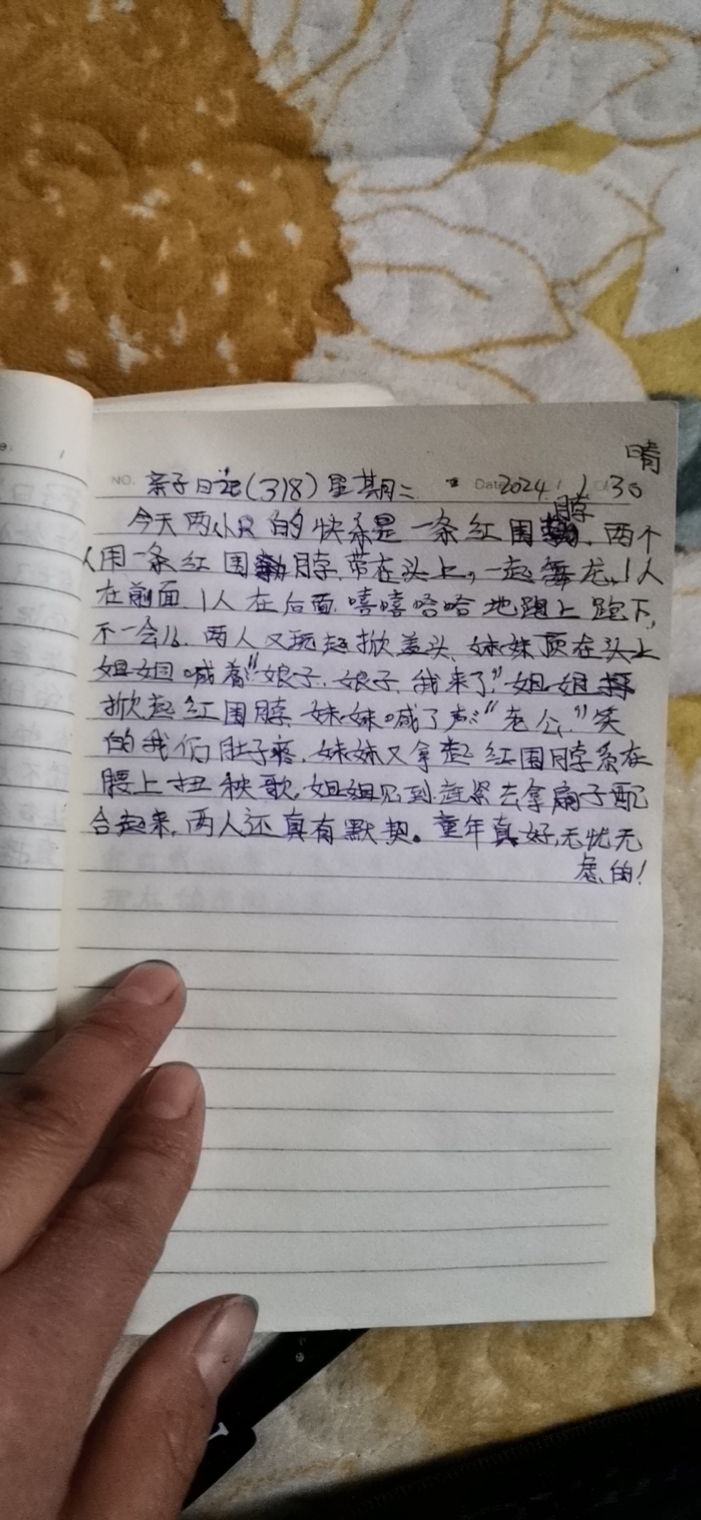 晴
NO. 亲子日记(318) 星期二 Date 2024.1.30
今天两小只的快乐是一条红围脖,两个
人用一条红围脖,带在头上,一起舞龙,1人
在前面,1人在后面,嘻嘻哈哈地跑上跑下,
不一会儿,两人又玩起掀盖头,妹妹顶在头上
姐姐喊着“娘子,娘子,我来了”姐姐
掀起红围脖,妹妹喊了声:“老公,”笑
的我们肚子疼,妹妹又拿起红围脖系在
腰上扭秧歌,姐姐见到赶紧去拿扇子配
合起来,两人还真有默契。童年真好,无忧无
虑的!